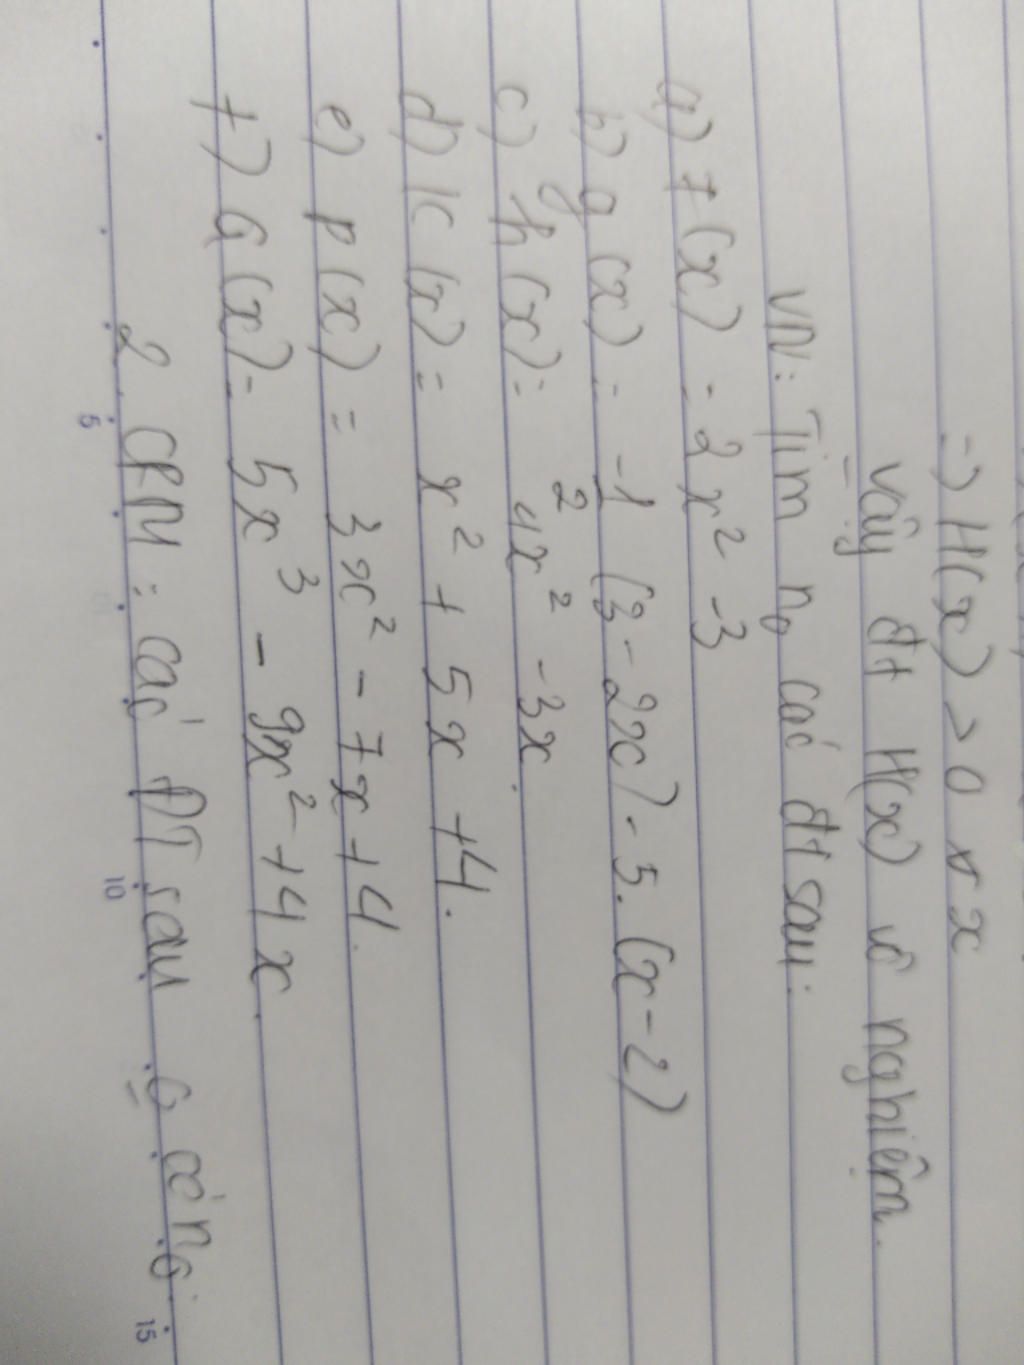 =) H(x) > 0 ∀ x
Vậy đt H(x) vô nghiệm.
VN: Tìm no các đt sau:
a) f(x) = 2x² - 3
b) g(x) = -1/2 (3 - 2x) - 5. (x - 2)
c) h(x) = 4x² - 3x.
d) k(x) = x² + 5x + 4.
e) p(x) = 3x² - 7x + 4.
f) q(x) = 5x³ - 9x² + 4x.
2. CRM: các ĐT sau o có no.
5
10
15